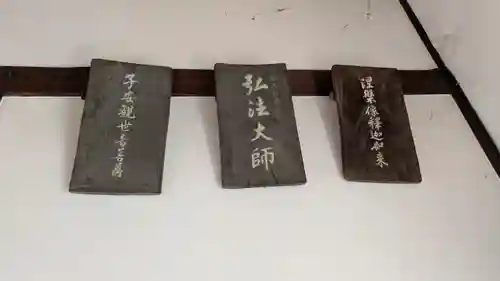 涅槃像釋迦如来
弘法大師
子安観世音菩薩